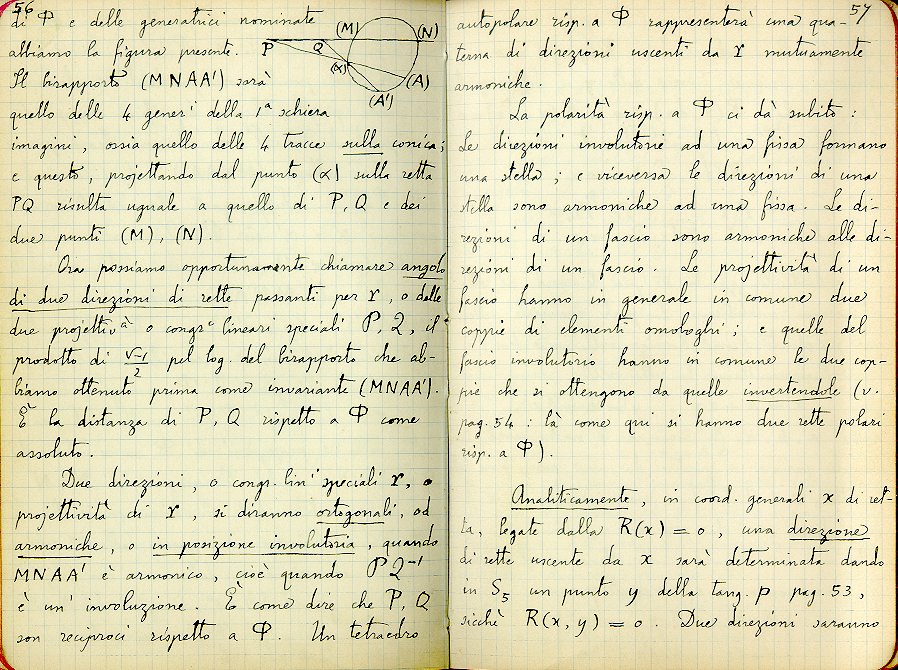 56
di Φ e delle generatrici nominate
abbiamo la figura presente.
Il birapporto (MNAA') sarà
quello delle 4 gener.i della 1ª schiera
imagini, ossia quello delle 4 tracce sulla conica;
e questo, projettando dal punto (α) sulla retta
PQ risulta uguale a quello di P, Q e dei
due punti (M), (N).
Ora possiamo opportunamente chiamare angolo
di due direzioni di rette passanti per r, o delle
due projettiv.à o congr.e lineari speciali P, Q, il
prodotto di √-1/2 pel log. del birapporto che ab-
biamo ottenuto prima come invariante (MNAA').
È la distanza di P, Q rispetto a Φ come
assoluto.
Due direzioni, o congr. lin.i speciali r, o
projettività di r, si diranno ortogonali, od
armoniche, o in posizione involutoria, quando
MNAA' è armonico, cioè quando PQ⁻¹
è un' involuzione. È come dire che P, Q
son reciproci rispetto a Φ. Un tetraedro
(M)
(N)
P
Q
(α)
(A)
(A')
57
autopolare risp. a Φ rappresenterà una qua-
terna di direzioni uscenti da r mutuamente
armoniche.
La polarità risp. a Φ ci dà subito:
Le direzioni involutorie ad una fissa formano
una stella; e viceversa le direzioni di una
stella sono armoniche ad una fissa. Le di-
rezioni di un fascio sono armoniche alle di-
rezioni di un fascio. Le projettività di un
fascio hanno in generale in comune due
coppie di elementi omologhi; e quelle del
fascio involutorio hanno in comune le due cop-
pie che si ottengono da quelle invertendole (v.
pag. 54: là come qui si hanno due rette polari
risp. a Φ).
Analiticamente, in coord. generali x di ret-
ta, legate dalla R(x) = 0, una direzione
di rette uscente da x sarà determinata dando
in S₅ un punto y della tang. p pag. 53,
sicchè R(x, y) = 0. Due direzioni saranno